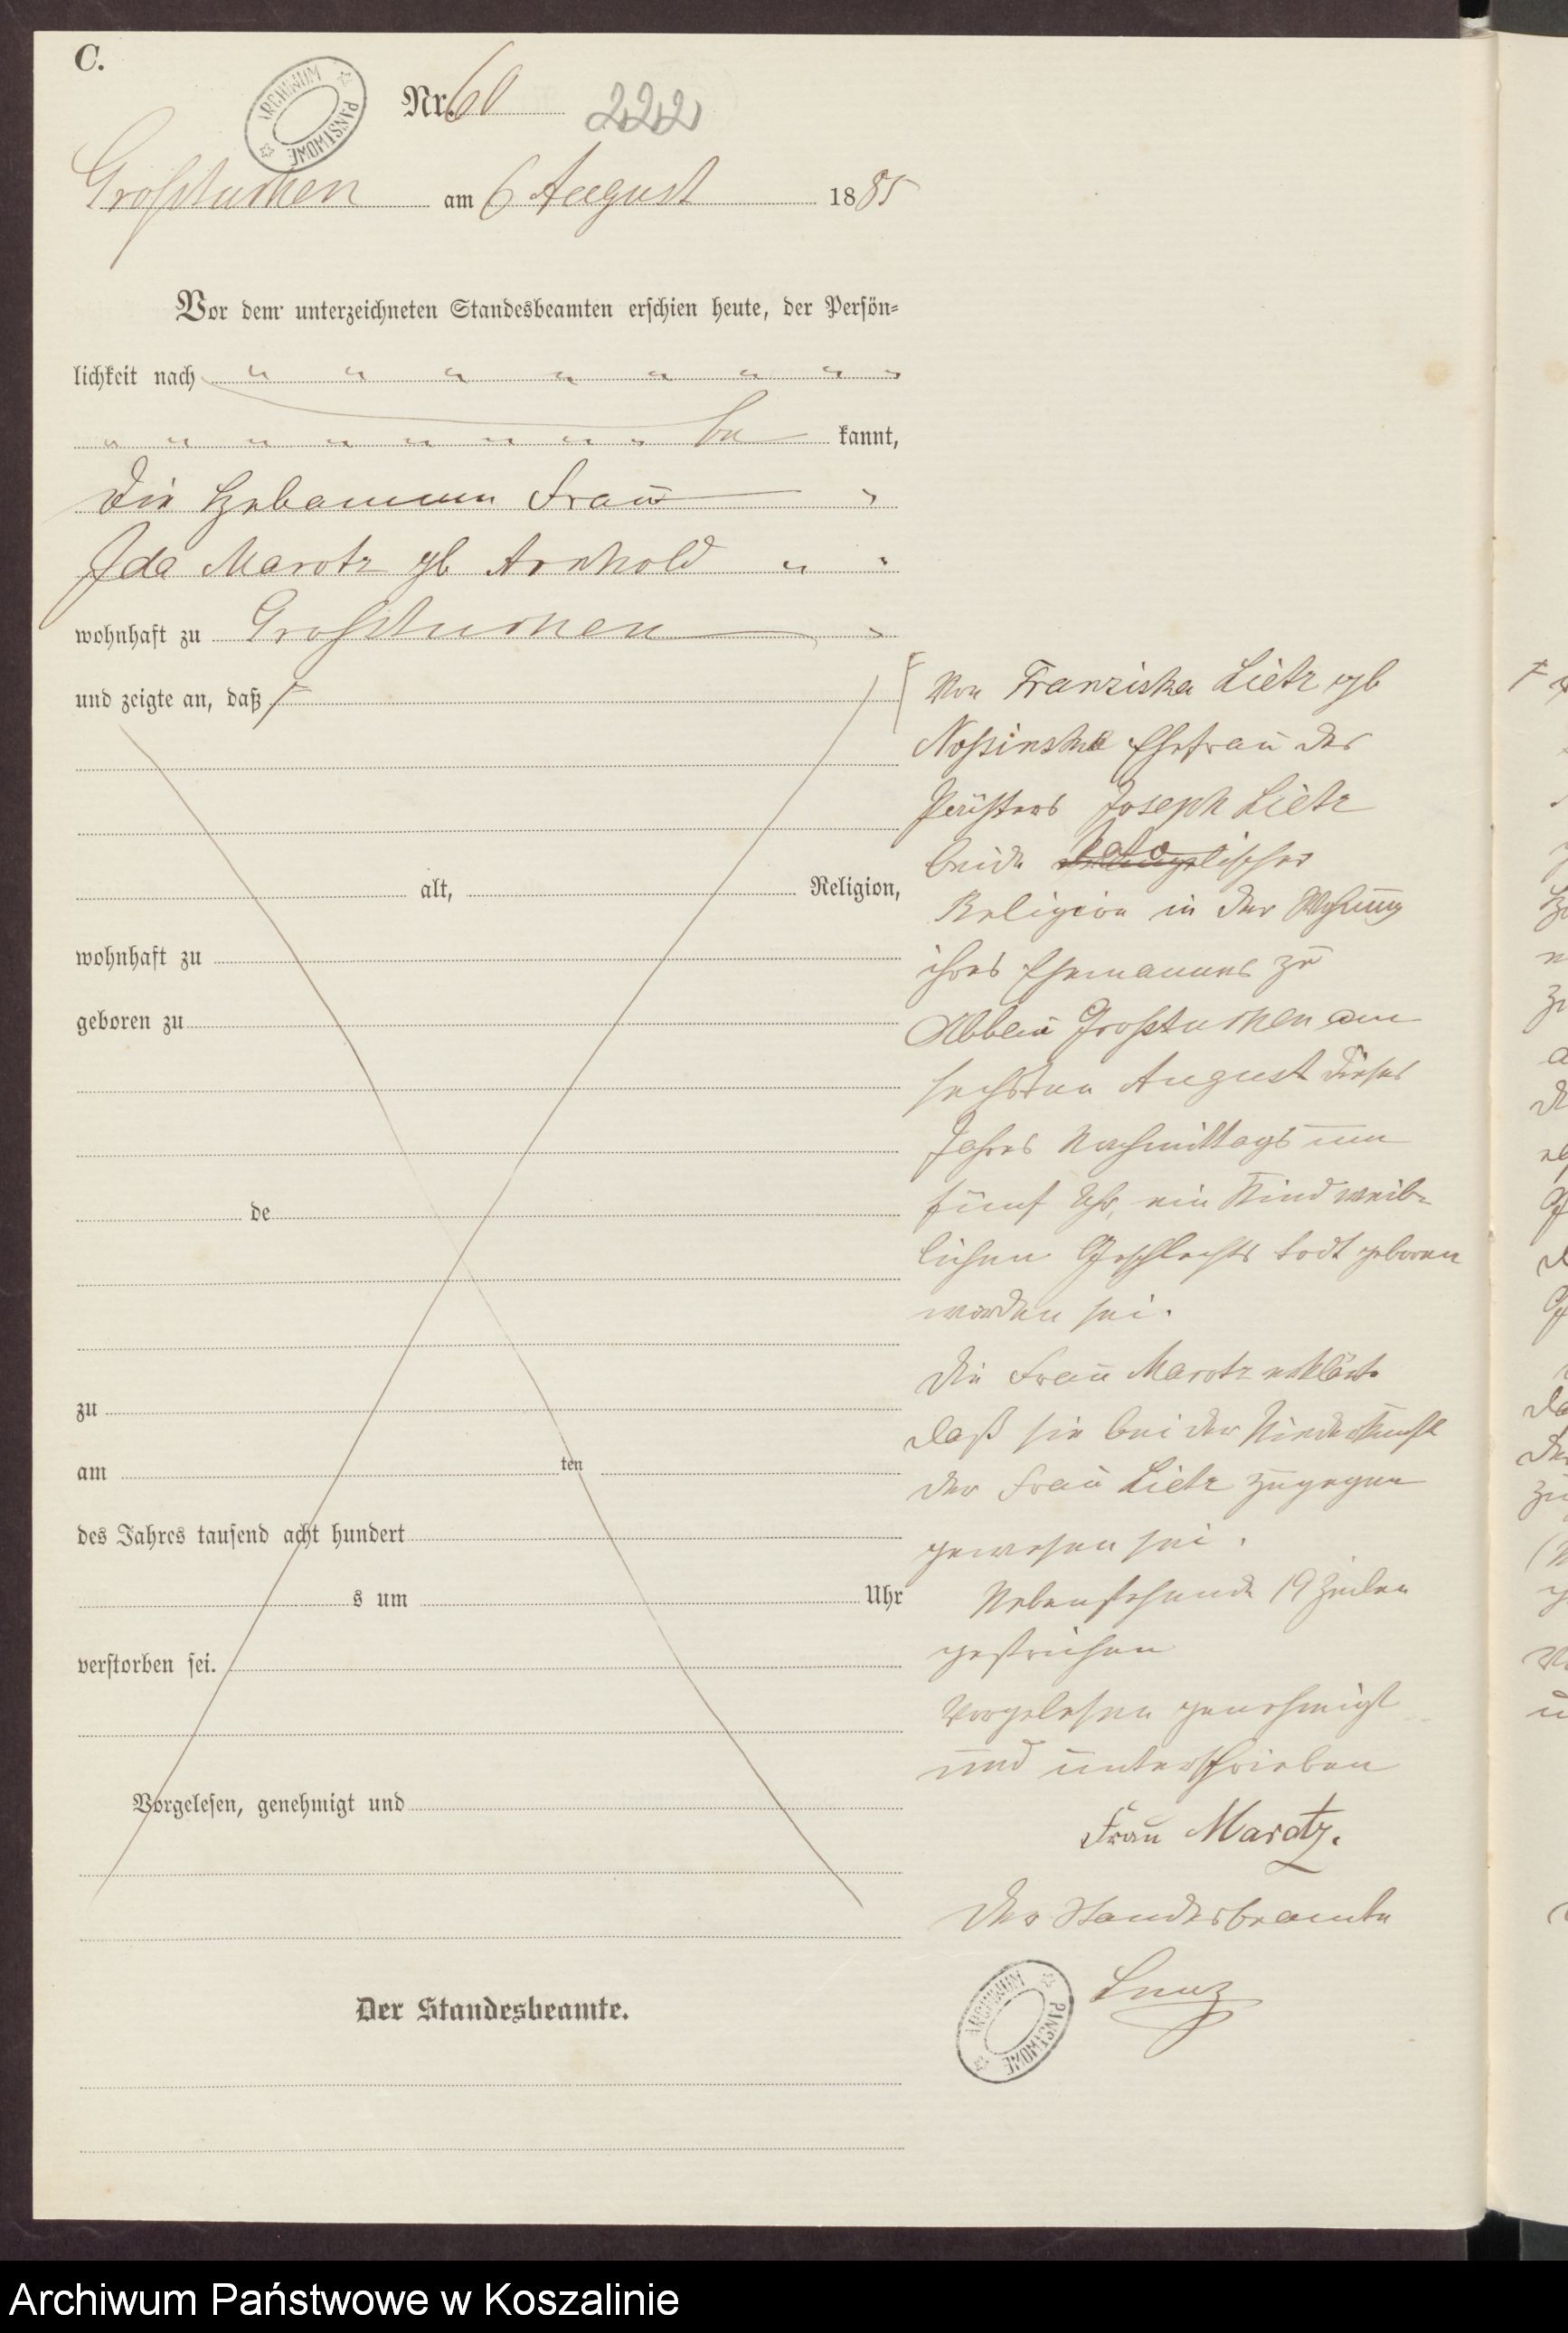 C.
ARCHIWUM PAŃSTWOWE
Nr. 60 222
Großtuchen am 6 August 1885
Vor dem unterzeichneten Standesbeamten erschien heute, der Persön=
lichkeit nach " " " " " " " "
" " " " " " " " be kannt,
die Hebamme Frau "
Ida Marotz gb Arnhold " "
wohnhaft zu Großtuchen "
und zeigte an, daß F
alt, Religion,
wohnhaft zu
geboren zu
de
zu
am ten
des Jahres tausend acht hundert
s um Uhr
verstorben sei.
Vorgelesen, genehmigt und
Der Standesbeamte.
F von Franziska Lietz gb
Ehefrau des
Joseph Lietz
beide katholischer
Religion in der Wohnung
ihres Ehemannes zu
Abbau Großtuchen am
sechsten August dieses
Jahres Nachmittags um
fünf Uhr, ein Kind weib-
lichen Geschlechts todt geboren
worden sei.
Die Frau Marotz erklärte
daß sie bei der Niederkunft
der Frau Lietz zugegen
gewesen sei.
Nebenstehende 19 Zeilen
gestrichen
Vorgelesen genehmigt
und unterschrieben
Frau Marotz.
Der Standesbeamte
ARCHIWUM PAŃSTWOWE
Archiwum Państwowe w Koszalinie